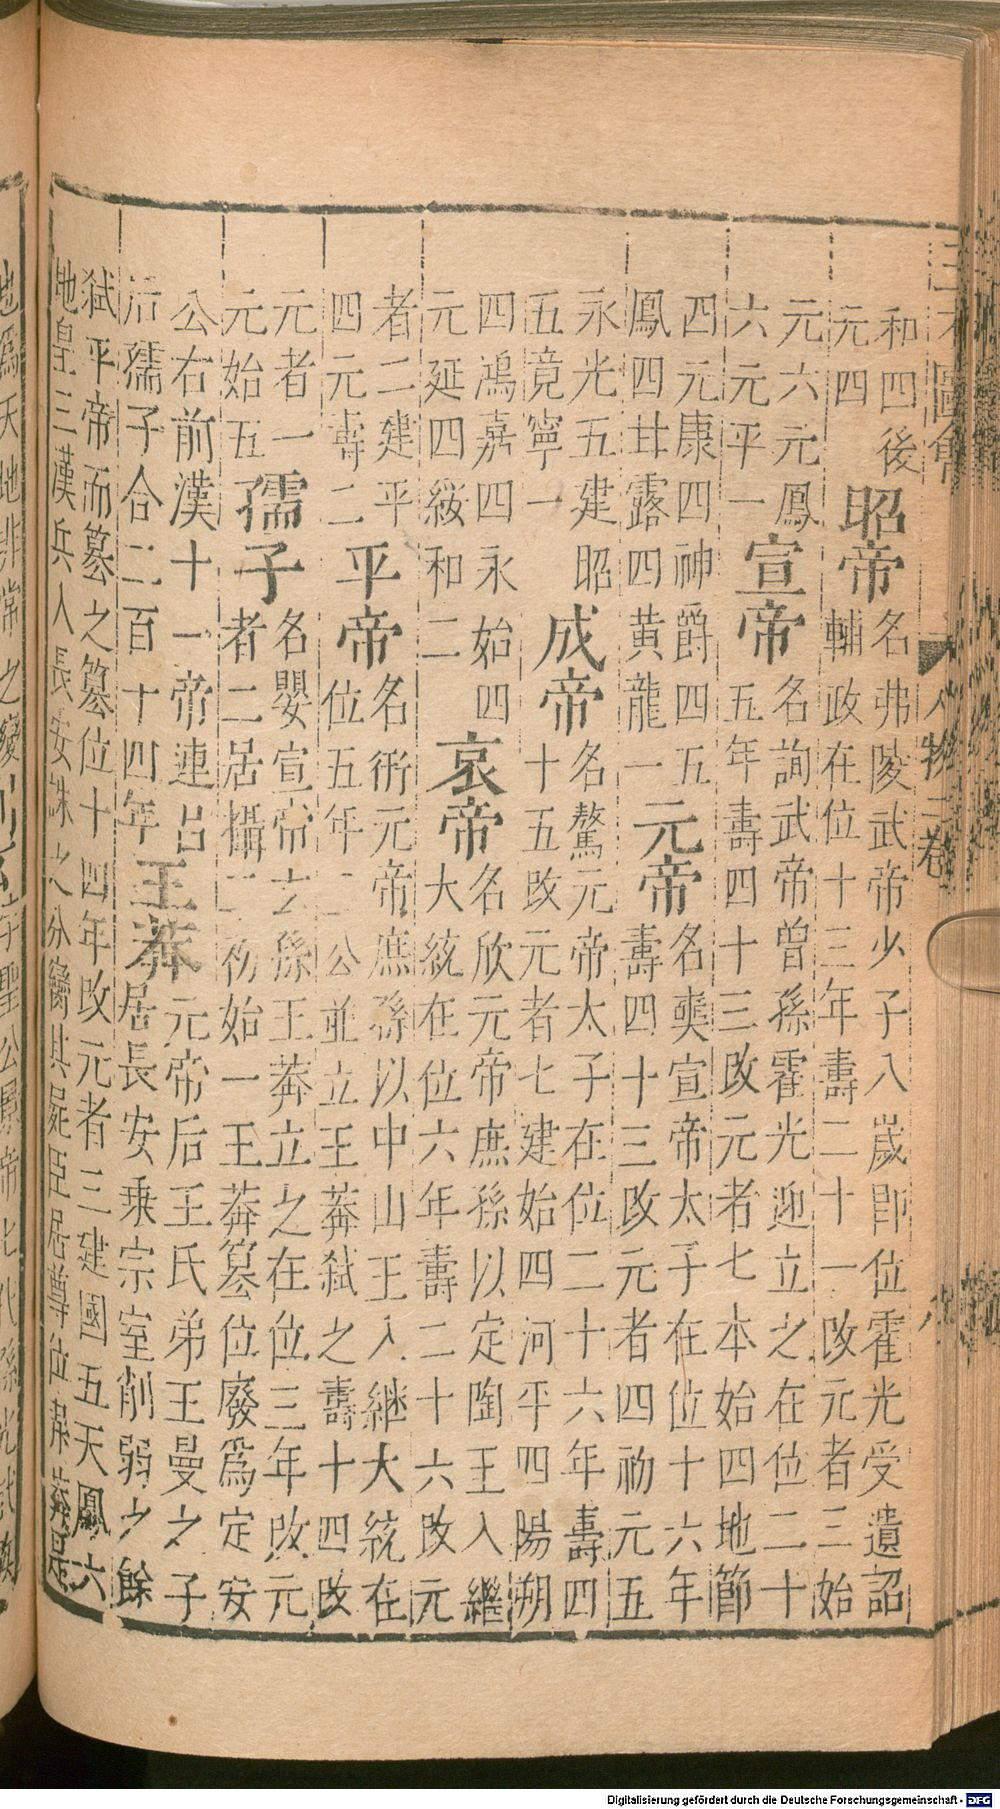 三才圖會
人物二卷
和四後
元四
昭帝
名弗陵武帝少子八歲即位霍光受遺詔
輔政在位十三年壽二十一改元者三始
元六元鳳
六元平一
宣帝
名詢武帝曽孫霍光迎立之在位二十
五年壽四十三改元者七本始四地節
四元康四神爵四五
鳳四甘露四黄龍一
元帝
名奭宣帝太子在位十六年
壽四十三改元者四初元五
永光五建昭
五竟寧一
成帝
名驁元帝太子在位二十六年壽四
十五改元者七建始四河平四陽朔
四鴻嘉四永始四
元延四綏和二
哀帝
名欣元帝庶孫以定陶王入繼
大統在位六年壽二十六改元
者二建平
四元壽二
平帝
名衎元帝庶孫以中山王入継大統在
位五年二公並立王莽弑之壽十四改
元者一
元始五
孺子
名嬰宣帝玄孫王莽立之在位三年改元
者二居攝二初始一王莽簒位廢爲定安
公右前漢十一帝連呂
后孺子合二百十四年
王莽
元帝后王氏弟王曼之子
居長安乗宗室削弱之餘
弑平帝而簒之簒位十四年改元者三建國五天鳳六
地皇三漢兵入長安誅之分臠其屍臣居尊位莽是
地爲天地非常之變
聖公景帝七代孫光武
Digitalisierung gefördert durch die Deutsche Forschungsgemeinschaft - DFG